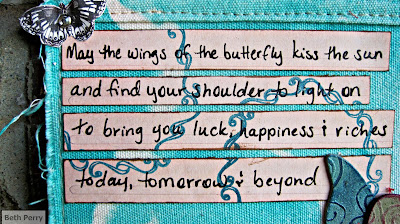 May the wings of the butterfly kiss the sun
and find your shoulder to light on
to bring you luck, happiness & riches
today, tomorrow & beyond
Beth Perry